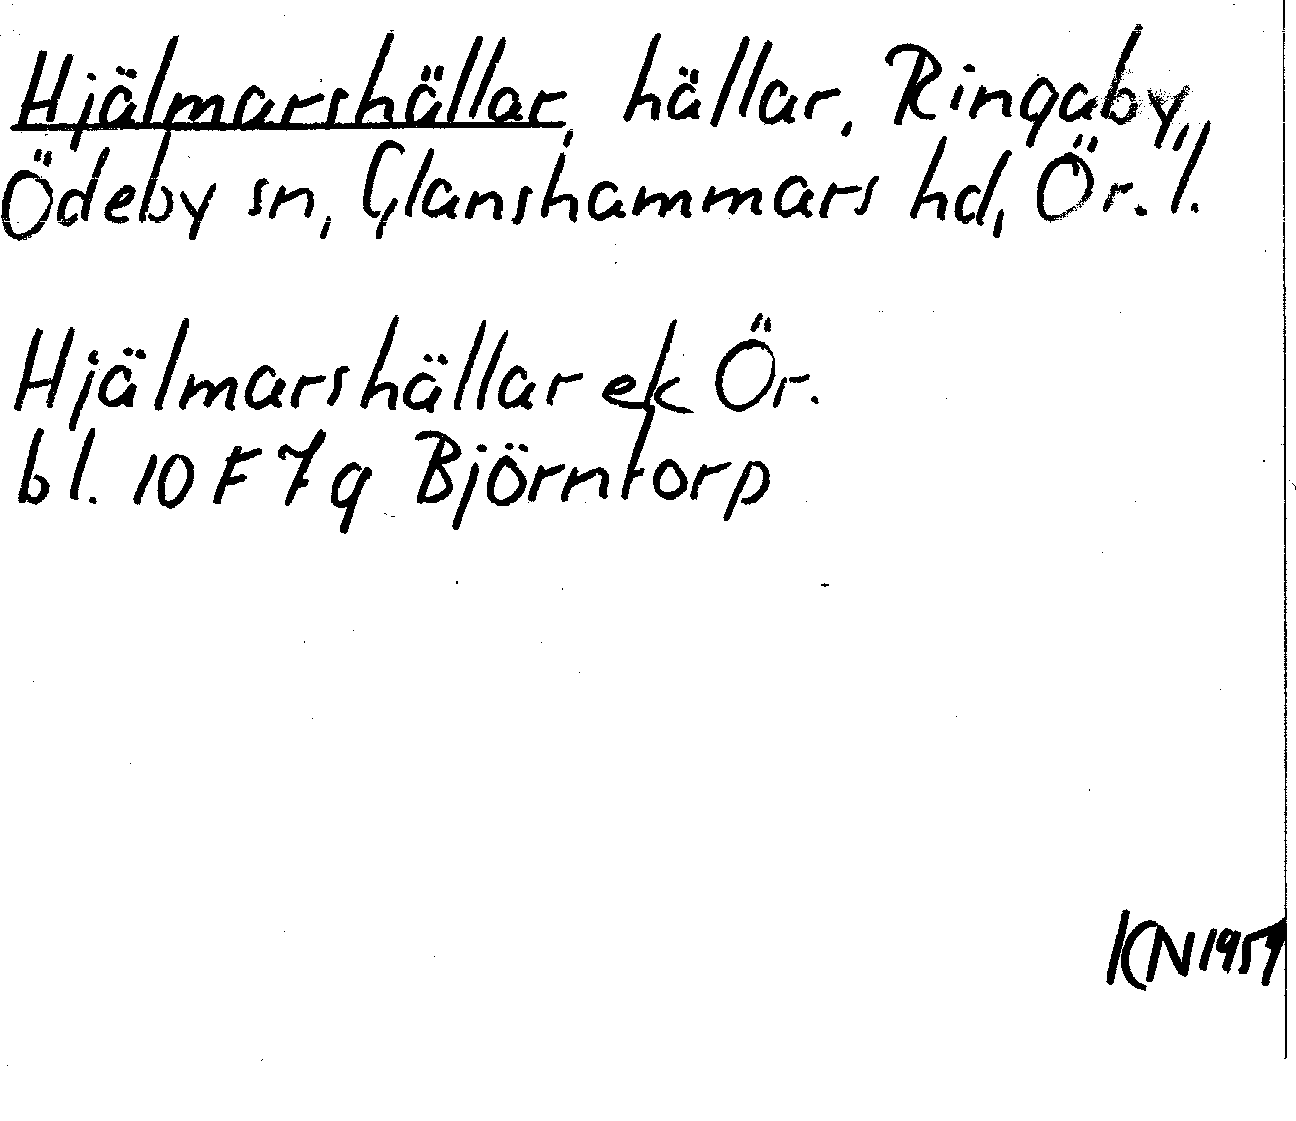 Hjälmarshällar, hällar, Ringaby,
Ödeby sn, Glanshammars hd, Ör. l.
Hjälmarshällar ek Ör.
bl. 10 F 7 g Björntorp
KN 1957